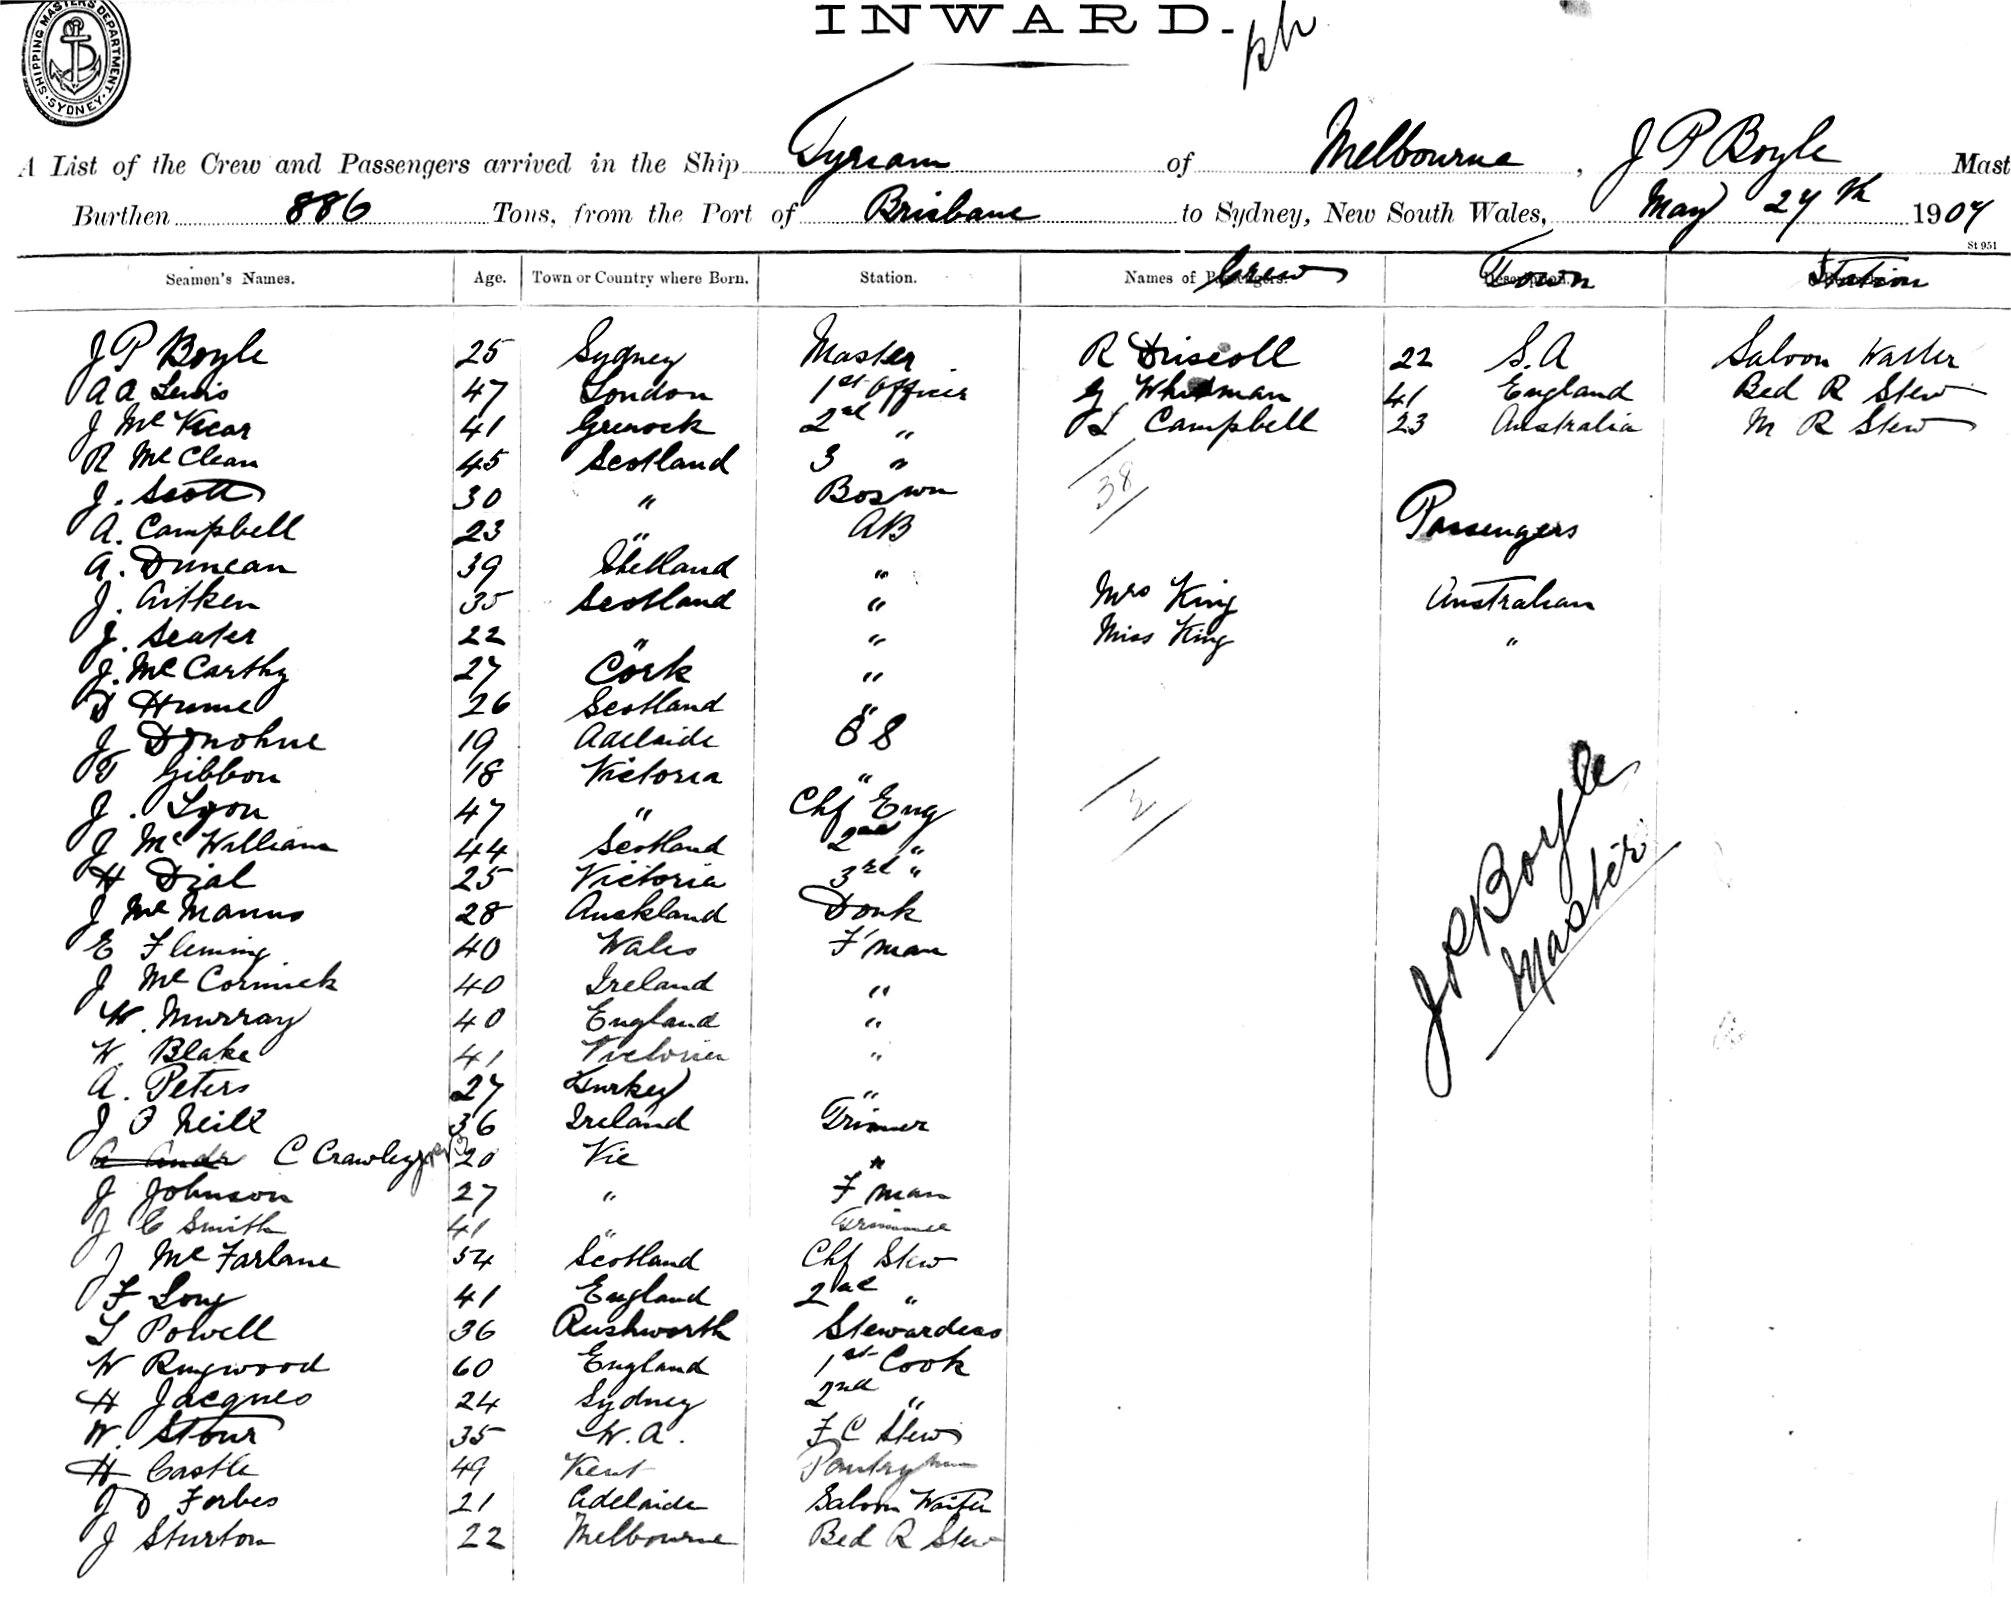 SHIPPING MASTERS DEPARTMENT SYDNEY
INWARD.
A List of the Crew and Passengers arrived in the Ship Tyrian of Melbourne, J P Boyle Mast
Burthen 886 Tons, from the Port of Brisbane to Sydney, New South Wales, May 27th 1907
St 951
Seamen's Names. Age. Town or Country where Born. Station. Names of Crew Town Station
J P Boyle 25 Sydney Master R Driscoll 22 S.A Saloon Waiter
A A Lewis 47 London 1st Officer G Whitman 41 England Bed R Stew
J McVicar 41 Grenock 2nd " L Campbell 23 Australia M R Stew
R McClean 45 Scotland 3 "
38
J. Scott 30 " Boswn
Passengers
A. Campbell 23 " AB
A. Duncan 39 Shetland "
J. Aitken 35 Scotland " Mrs King Australian
J. Seater 22 " " Miss King "
J. McCarthy 27 Cork "
D Hume 26 Scotland "
J Donohue 19 Adelaide O S
T Gibbon 18 Victoria "
J. Lyon 47 " Chf Eng
2
J McWilliam 44 Scotland 2nd "
H Dial 25 Victoria 3rd "
J McManus 28 Auckland Donk
E Fleming 40 Wales F'man
J McCormick 40 Ireland "
W. Murray 40 England "
W. Blake 41 Victoria "
A. Peters 27 Turkey "
J P Boyle
Master
J O Neill 36 Ireland Trimmer
A Andr C Crawley 20 Vic "
J Johnson 27 " F man
J C Smith 41 " Trimmer
J McFarlane 54 Scotland Chf Stew
F Long 41 England 2nd "
L Powell 36 Rushworth Stewardess
W Ringwood 60 England 1st Cook
H Jacques 24 Sydney 2nd "
W. Stour 35 W.A. F C Stew
H Castle 49 Kent Pantryman
J D Forbes 21 Adelaide Saloon Waiter
J Sturton 22 Melbourne Bed R Stew